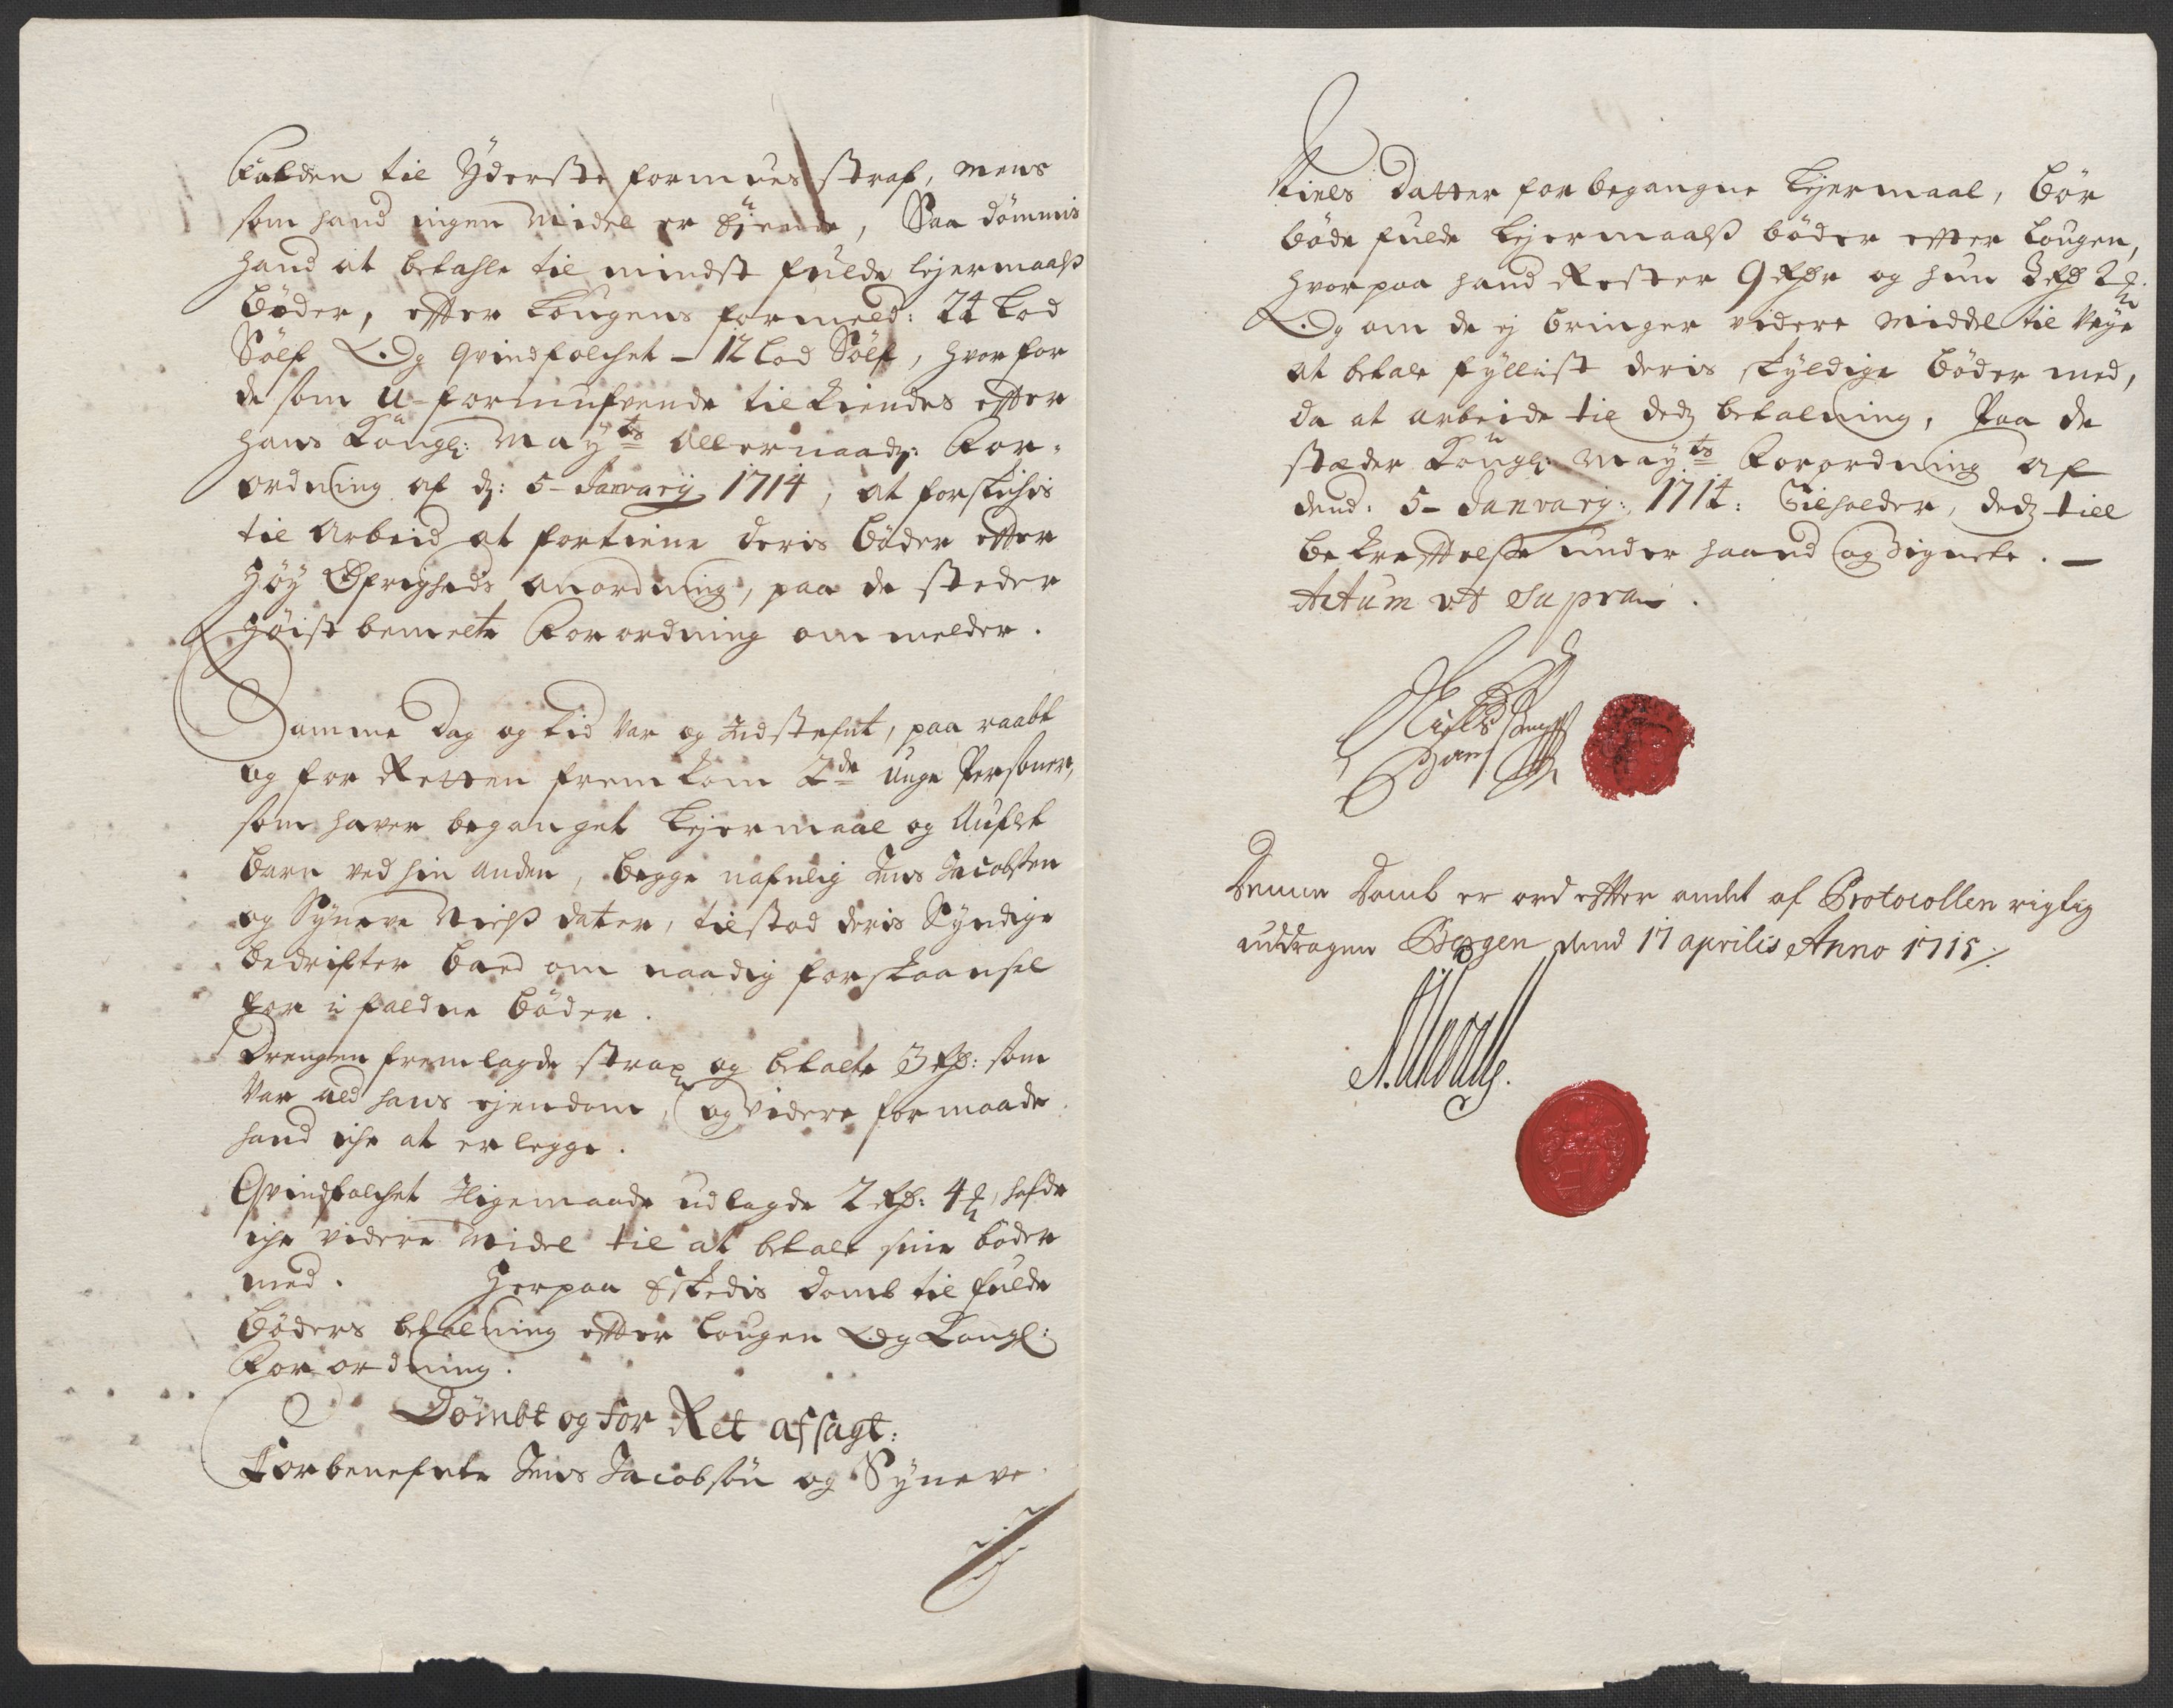 falden til Yderste formues straf, mens
som hand ingen Midel er Ejende, Saa dömmis
hand at betahle til mindst fulde lejermaalß
böder, efter Lougens formeld: 24 Lod
Sölf Og qvindfolchet - 12 Lod Sölf, hvorfor
de som U-formufvende tilkiendes efter
hans Kongl: Mayts Allernaadg: For-
ordning af d: 5 - Janvarij 1714, at forskichis
til Arbeid at fortiene deris böder efter
Høy Øfrigheds anordning, paa de steder
Høist bemelte Forordning om melder.
Samme Dag og tid var og Indstefnt, paa raabt
og for Retten fremkom 2de unge Personer,
som haver beganget Lejermaal og Auflet
barn ved hin anden, begge nafnlig Jens Jacobsen
og Syneve Nielß dater, tilstod deris Syndige
bedrifter baed om naadig forskaansel
for i faldne böder.
Drengen fremlagde strax og betalte 3 Rd: som
var ald hans ejendom, og videre formaade
hand iche at erlegge.
Qvindfolchet Iligemaade udlagde 2 Rd: 4 ß, hafde
iche videre Midel til at betale sine böder
med. Herpaa Eskedis domb til fulde
böders betalning efter Lougen Og Kongl:
Forordning.
Dömbt og for Ret afsagt:
Forbenefnte Jens Jacobsön og Syneve
Niels datter for begangne Lejermaal, bör
böde fulde Lejermaalß böder efter Lougen,
hvorpaa hand Rester 9 Rdr og hun 3 Rd 2
Og om de ej bringer videre Middel til Veye
at betale fyllist deris skyldige böder med,
da at arbeide til dedß betalning, Paa de
stæder Kongl: Mayts Forordning af
dend: 5 - Janvarij: 1714: Tilholder, dedß till
bekreftelse under haand og Signete. -
Actum ut Supra.
Denne Domb er ord efter andet af Protocollen rigtig
uddragen Bergen dend 17 aprilis Anno 1715